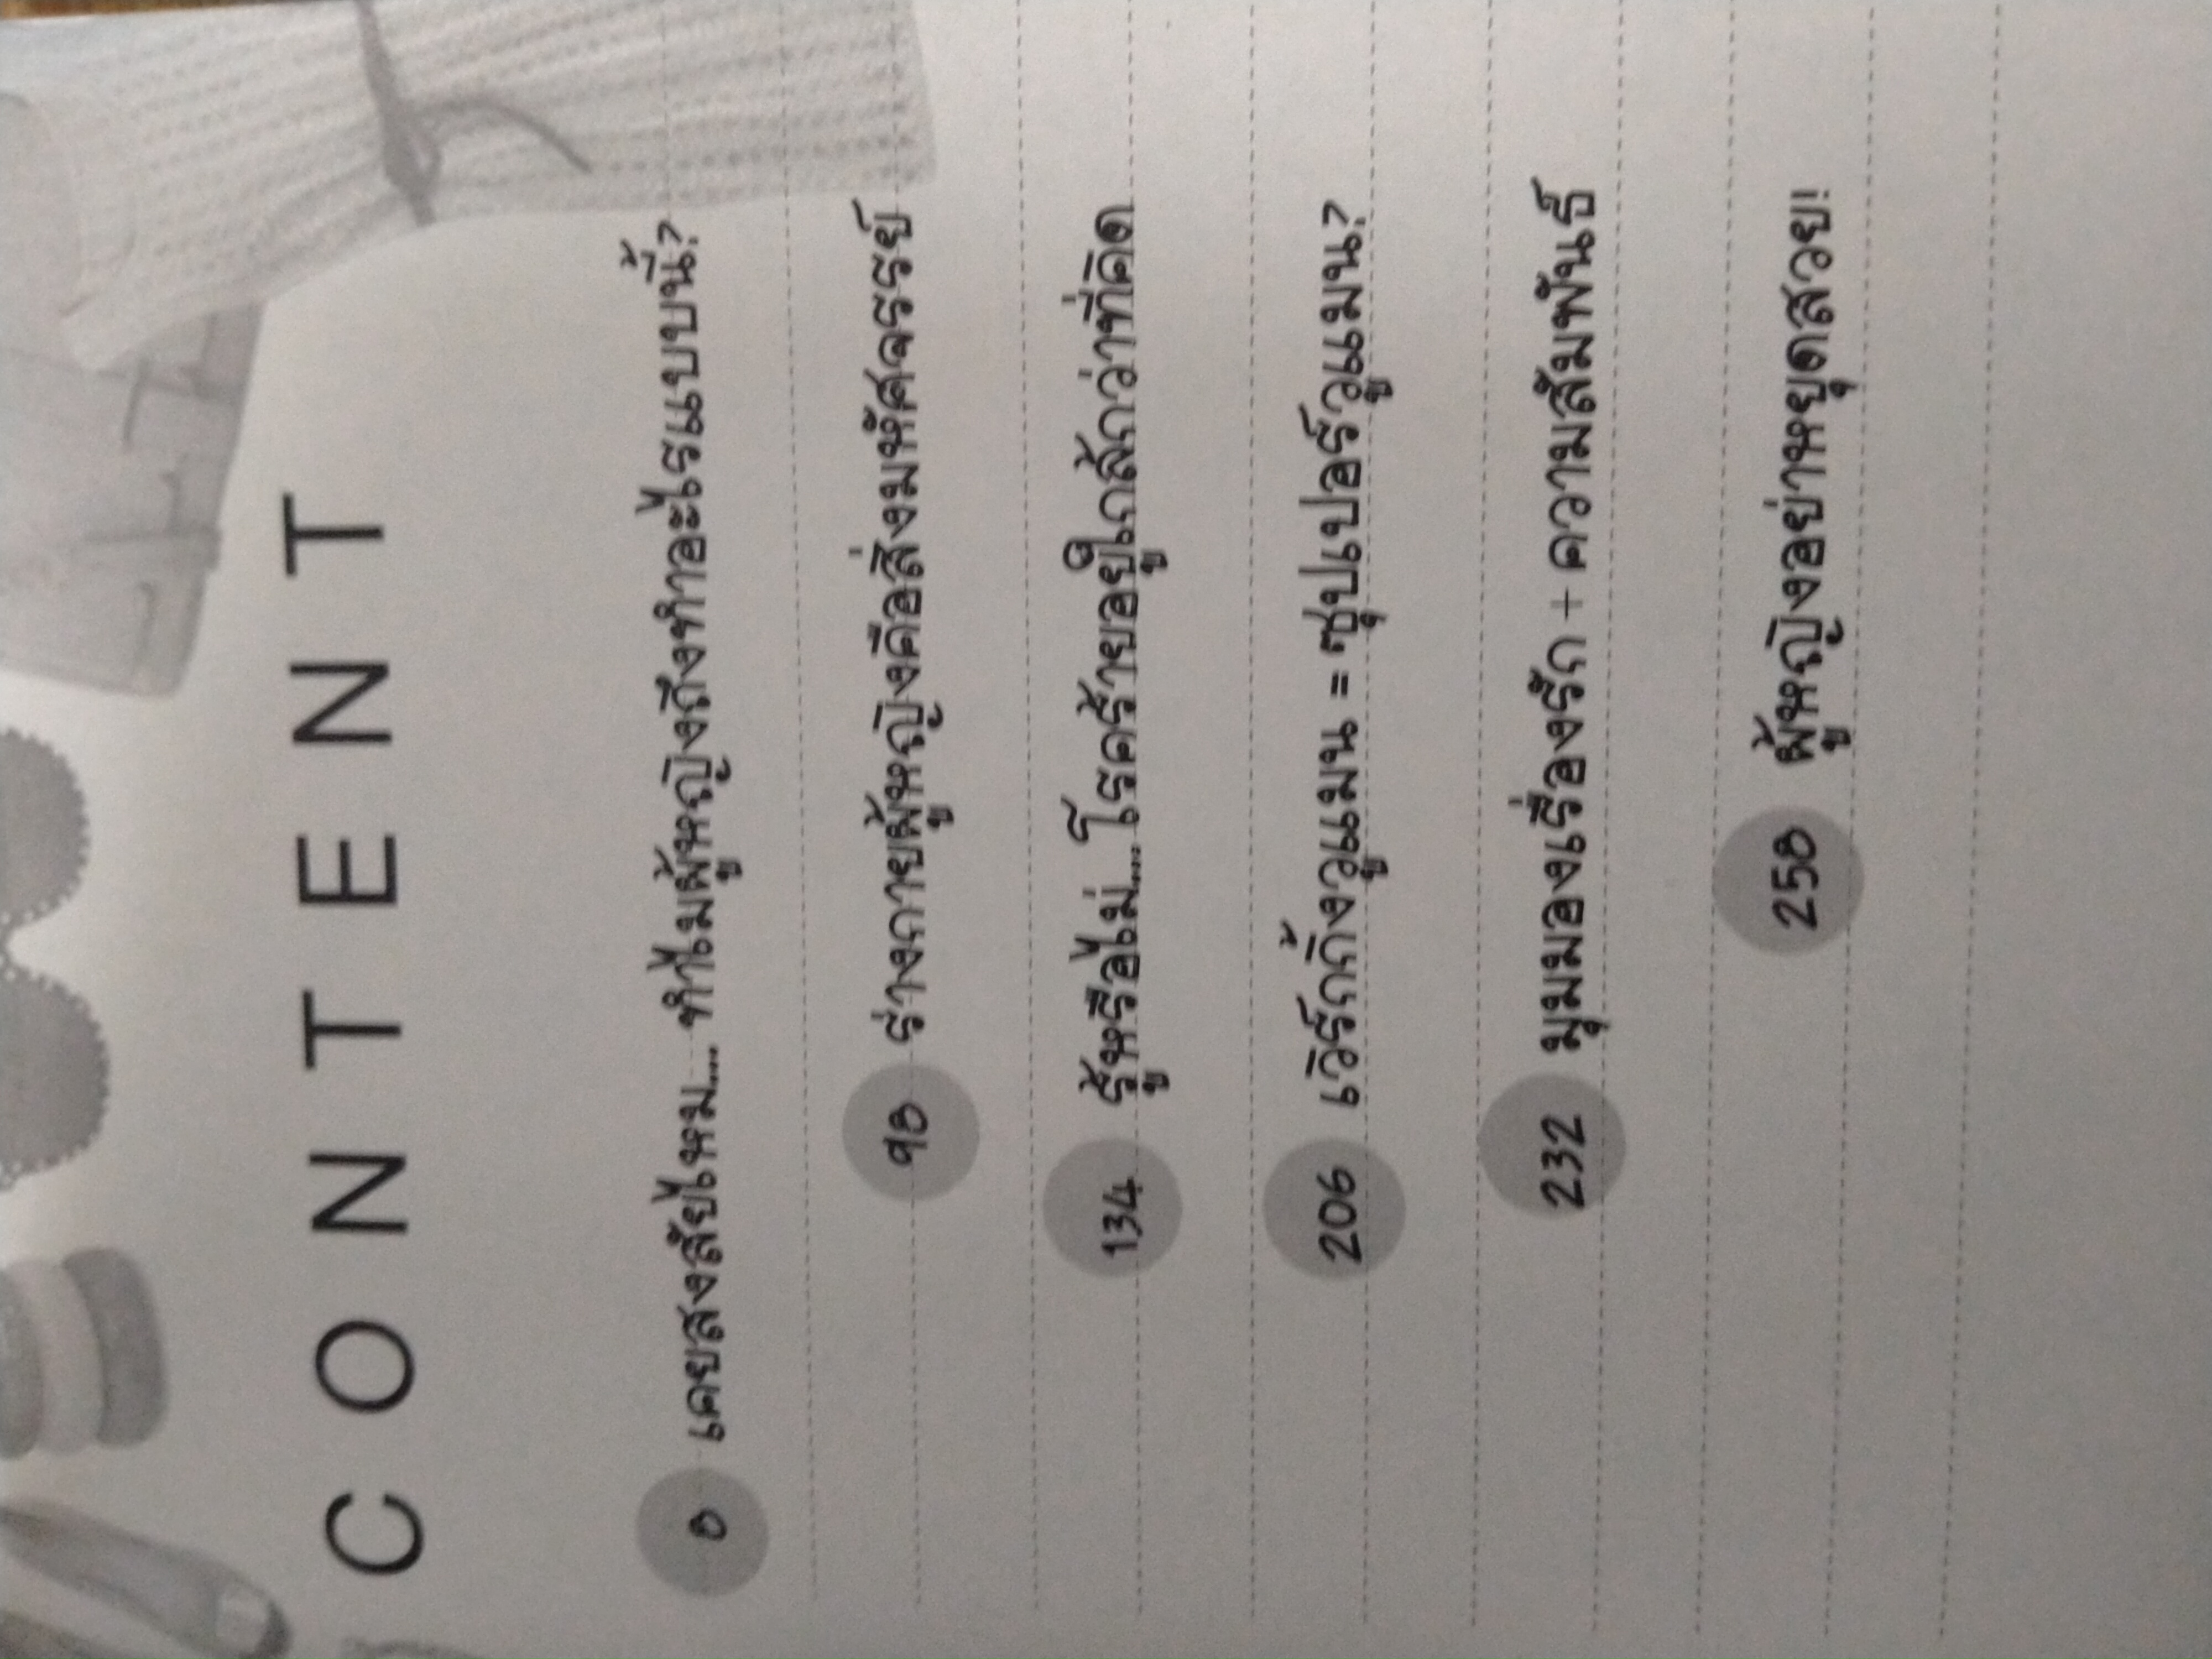 CONTENT
8 เคยสงสัยไหม.... ทำไมผู้หญิงถึงทำอะไรแบบนี้?
98 ร่างกายผู้หญิงคือสิ่งมหัศจรรย์
134 รู้หรือไม่....โรคร้ายอยู่ใกล้กว่าที่คิด
206 เวิร์กกิ้งวูแมน = ซุปเปอร์วูแมน?
232 มุมมองเรื่องรัก + ความสัมพันธ์
258 ผู้หญิงอย่าหยุดสวย!